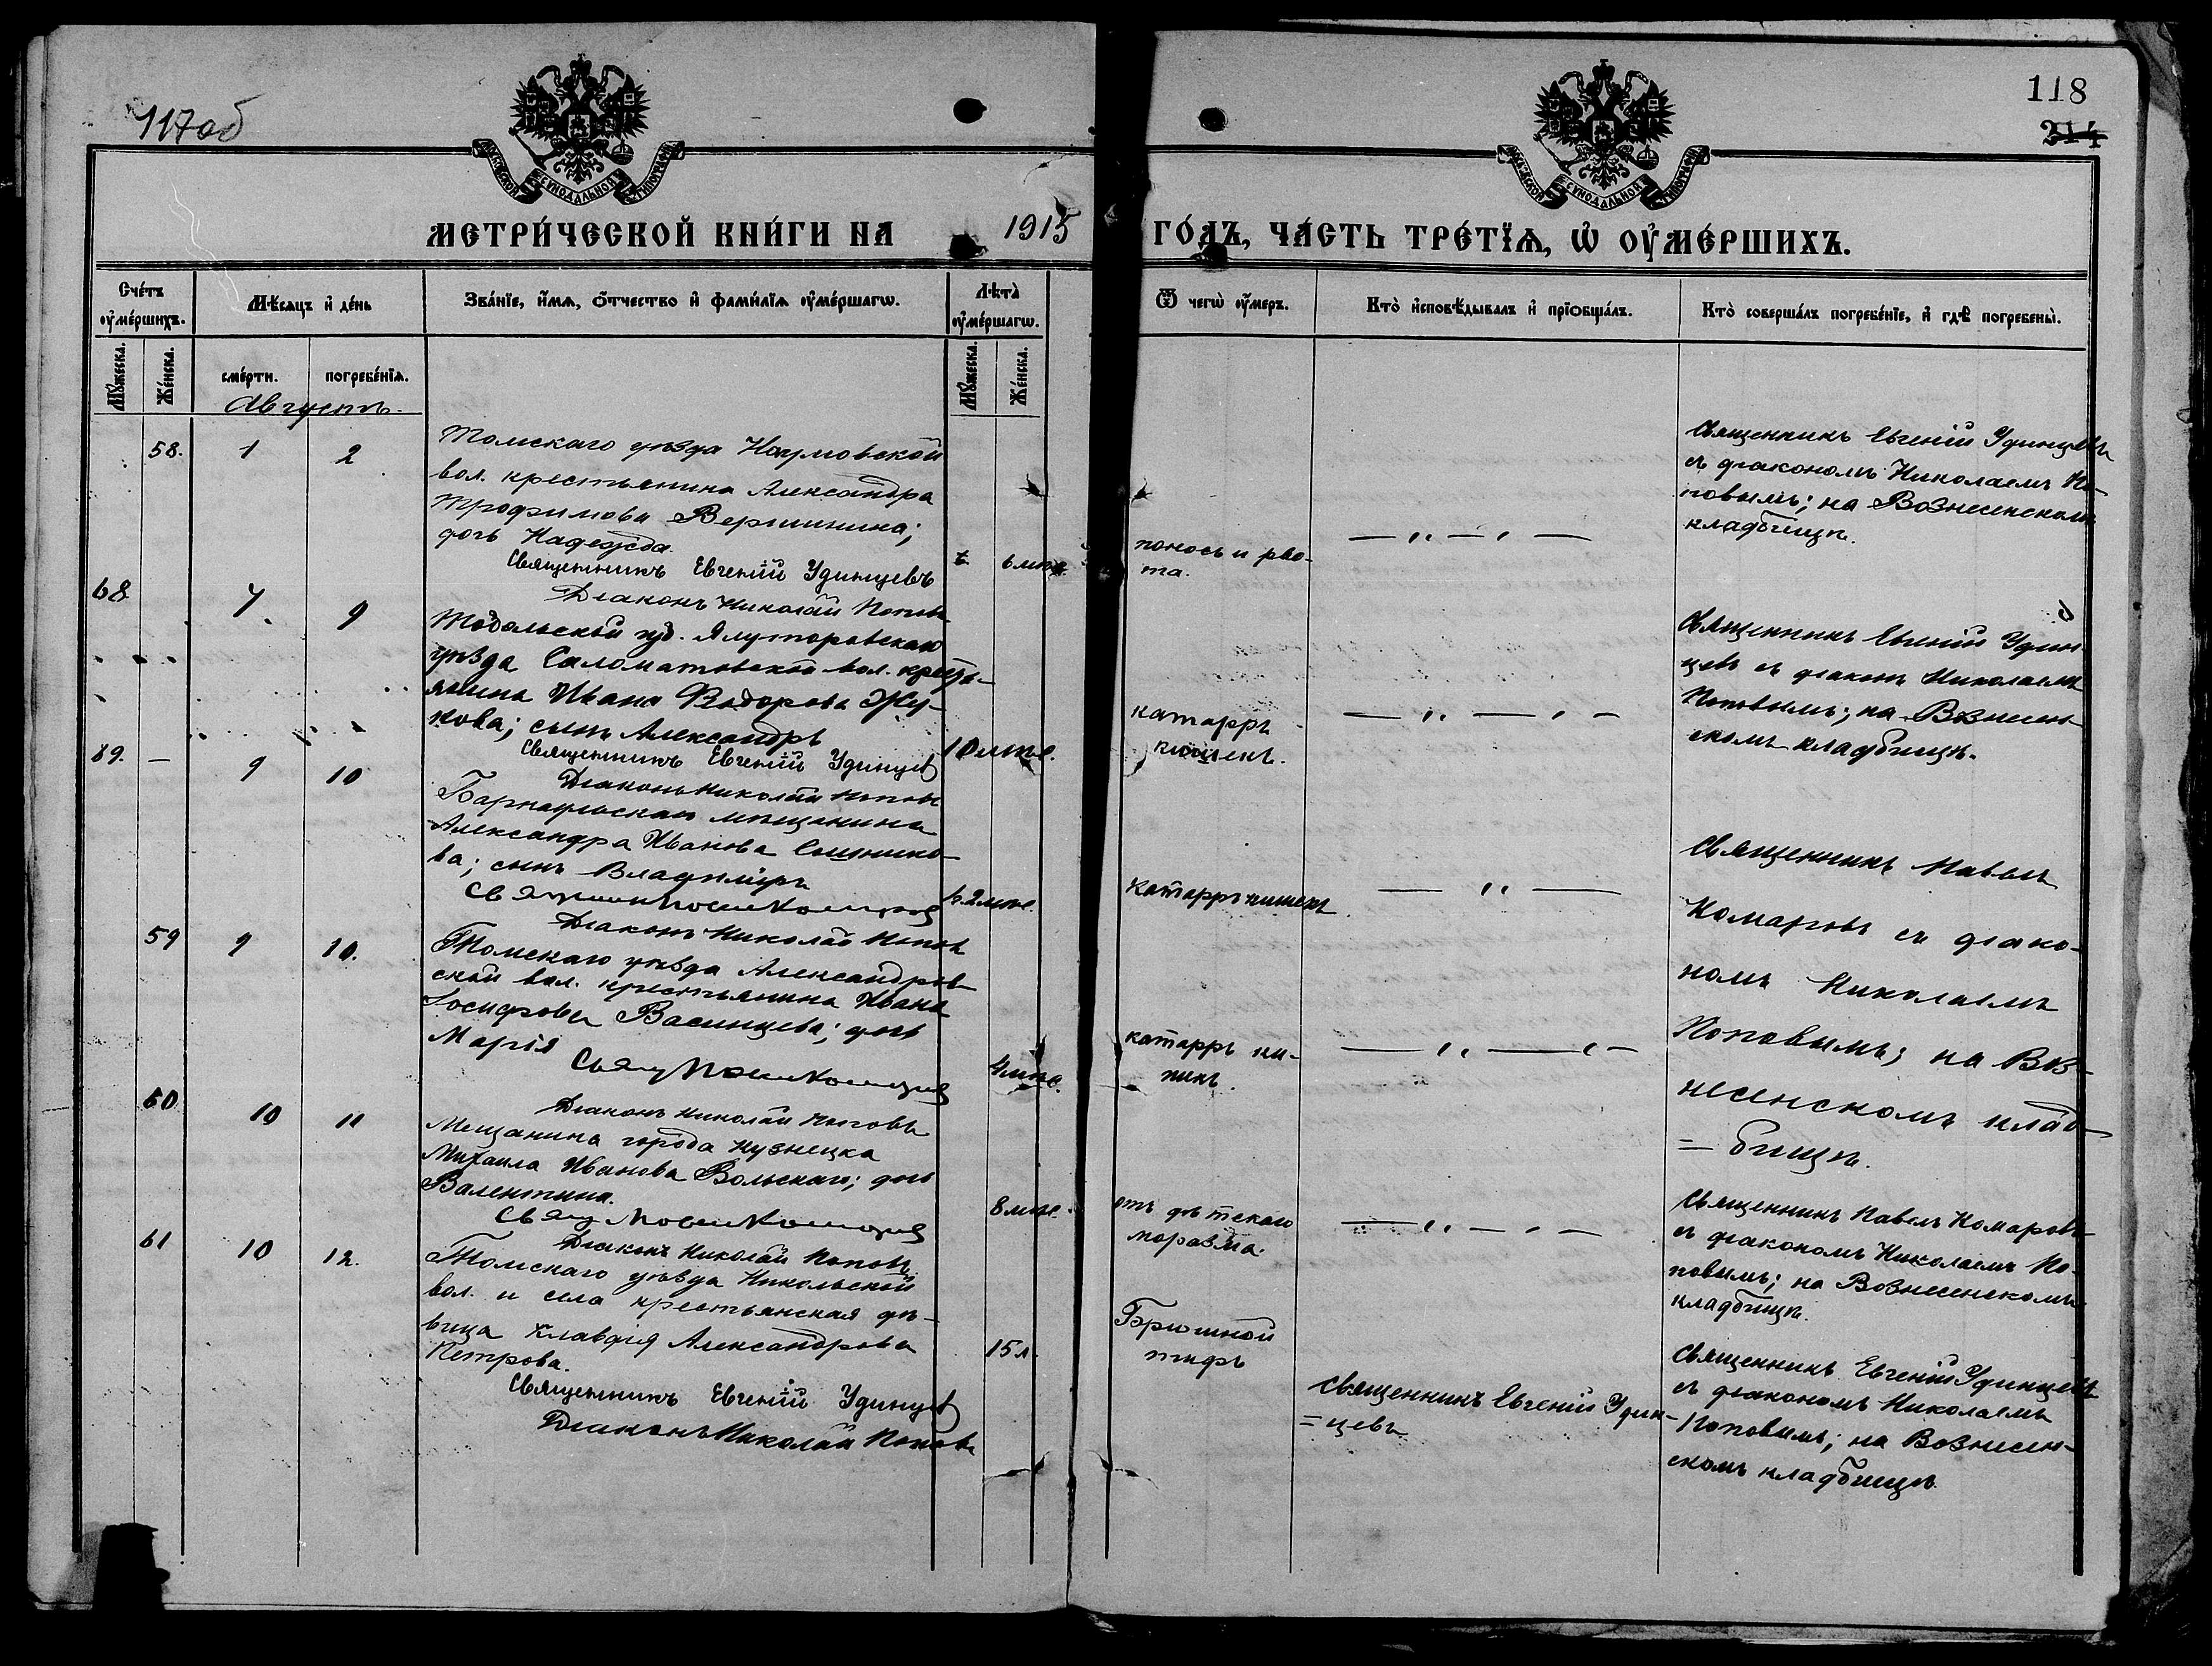 117об
118
214
МОСКОВСКОЙ СѴНОДАЛЬНОЙ ТИПОГРАФІИ
МОСКОВСКОЙ СѴНОДАЛЬНОЙ ТИПОГРАФІИ
МЕТРИ́ЧЕСКОЙ КНИ́ГИ НА 1915 ГО́ДЪ, ЧА́СТЬ ТРЕ́ТЇѦ, Ѡ҆ ОУ҆МЕ́РШИХЪ.
Сче́тъ оу҆ме́ршихъ.
Мѣ́сяцъ и҆ де́нь
Зва́нїе, и҆́мѧ, ѻ҆́тчество и҆ фами́лїѧ оу҆ме́ршагѡ.
Лѣта̀ оу҆ме́ршагѡ.
Ѿ чегѡ̀ оу҆́меръ.
Кто̀ и҆сповѣ́дывалъ и҆ прїѻбща́лъ.
Кто̀ соверша́лъ погребе́нїе, и҆ гдѣ̀ погребены̀.
Мꙋ́жеска.
Же́нска.
сме́рти.
погребе́нїѧ.
Мꙋ́жеска.
Же́нска.
Августъ.
58. 1 2
Томскаго уѣзда Наумовской
вол. крестьянина Александра
Трофимова Вершинина;
дочь Надежда.
Священникъ Евгеній Удинцевъ
Діаконъ Николай Поповъ
6 мѣс.
поносъ и рво-
та.
— „ — , —
Священникъ Евгеній Удинцевъ
съ діакономъ Николаемъ По-
повымъ; на Вознесенскомъ
кладбищѣ.
68. 7. 9
Тобольской губ. Ялуторовскаго
уѣзда Саломатовской вол. кресть-
янина Ивана Ѳедорова Жу-
кова; сынъ Александръ
Священникъ Евгеній Удинцев
Діаконъ Николай Поповъ
10 мѣс.
катарръ
кишекъ.
— „ — , —
Священникъ Евгеній Удин
цевъ съ діакон Николаемъ
Поповымъ; на Вознесен-
скомъ кладбищѣ.
69. — 9 10
Барнаульскаго мѣщанина
Александра Иванова
сынъ Владиміръ
Діаконъ Николай Поповъ
2 мѣс.
катарръ кишекъ
— „ —
Священникъ Павелъ
Комаровъ съ діако-
номъ Николаемъ
Поповымъ; на Воз-
несенскомъ клад-
= бищѣ.
59 9 10.
Томскаго уѣзда Александров-
ской вол. крестьянина Ивана
Іосифова Васинцева; дочь
Марія
Діаконъ Николай Поповъ
4 мѣс.
катарръ ки-
шекъ.
— „ — „ —
60 10 11
Мещанина города Кузнецка
Михаила Иванова Вольскаго; дочь
Валентина.
Діаконъ Николай Поповъ
8 мѣс.
отъ дѣтскаго
моразма.
— „ — , —
Священникъ Павелъ Комаровъ
съ діакономъ Николаемъ По-
повымъ; на Вознесенскомъ
кладбищѣ.
61 10 12.
Томскаго уѣзда Никольской
вол. и села крестьянская дѣ-
вица Клавдія Александрова
Петрова.
Священникъ Евгеній Удинцев
Діаконъ Николай Поповъ
15 л.
Брюшной
тифъ
Священникъ Евгеній Удин-
= цевъ
Священникъ Евгеній Удинцевъ
съ діакономъ Николаемъ
Поповымъ; на Вознесен-
скомъ кладбищѣ.